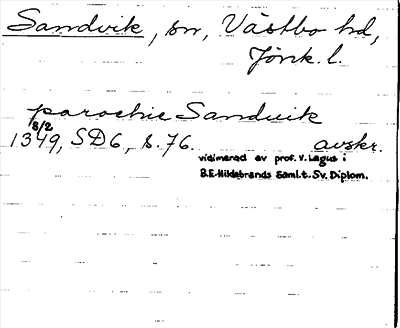 Sandvik, sn, Västbo hd,
Jönk. l.
parochie Sandwik
8/2
1349, SD6, s. 76. avskr.
vidimerad av prof. V. Lagus i
B.E. Hildebrands Saml. t. Sv. Diplom.